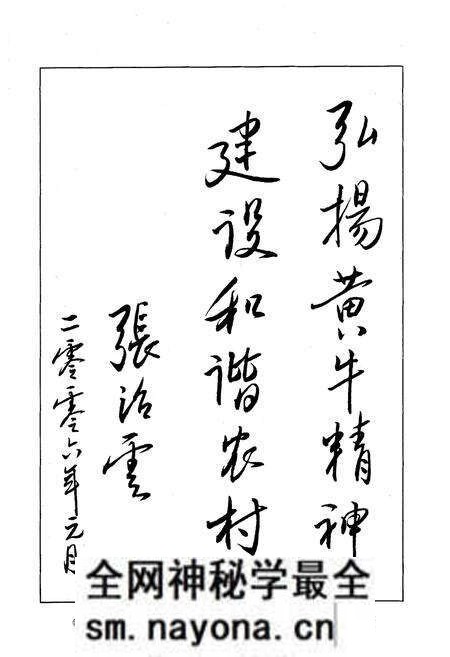 弘揚黄牛精神
建设和谐农村
張治雲
二零零六年元月
全网神秘学最全
sm.nayona.cn